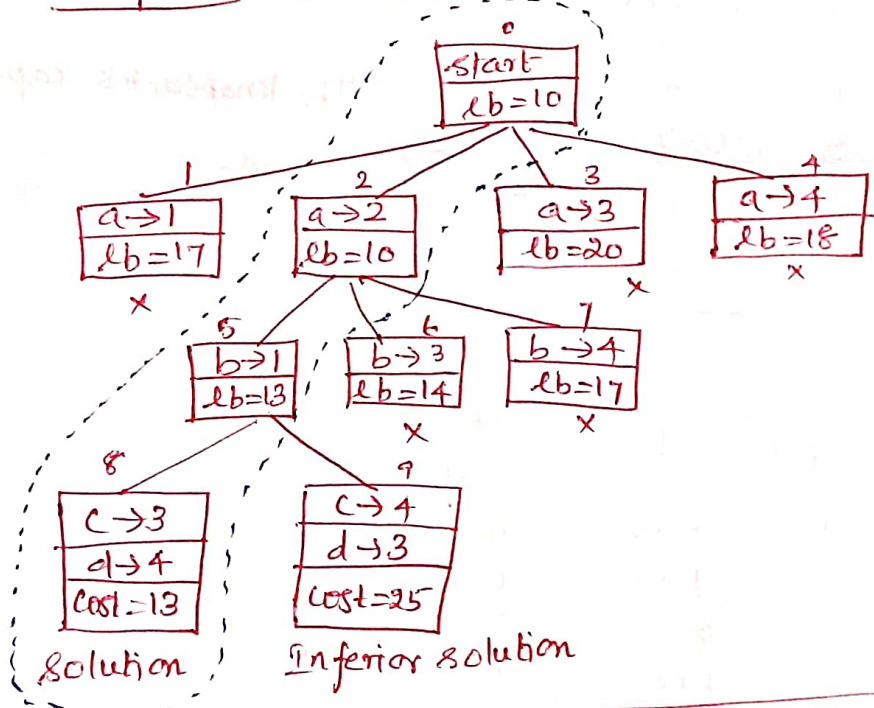 0
start
lb=10
1
a→1
lb=17
x
2
a→2
lb=10
3
a→3
lb=20
x
4
a→4
lb=18
x
5
b→1
lb=13
6
b→3
lb=14
x
7
b→4
lb=17
x
8
c→3
d→4
Cost=13
Solution
9
C→4
d→3
Cost=25
Inferior solution